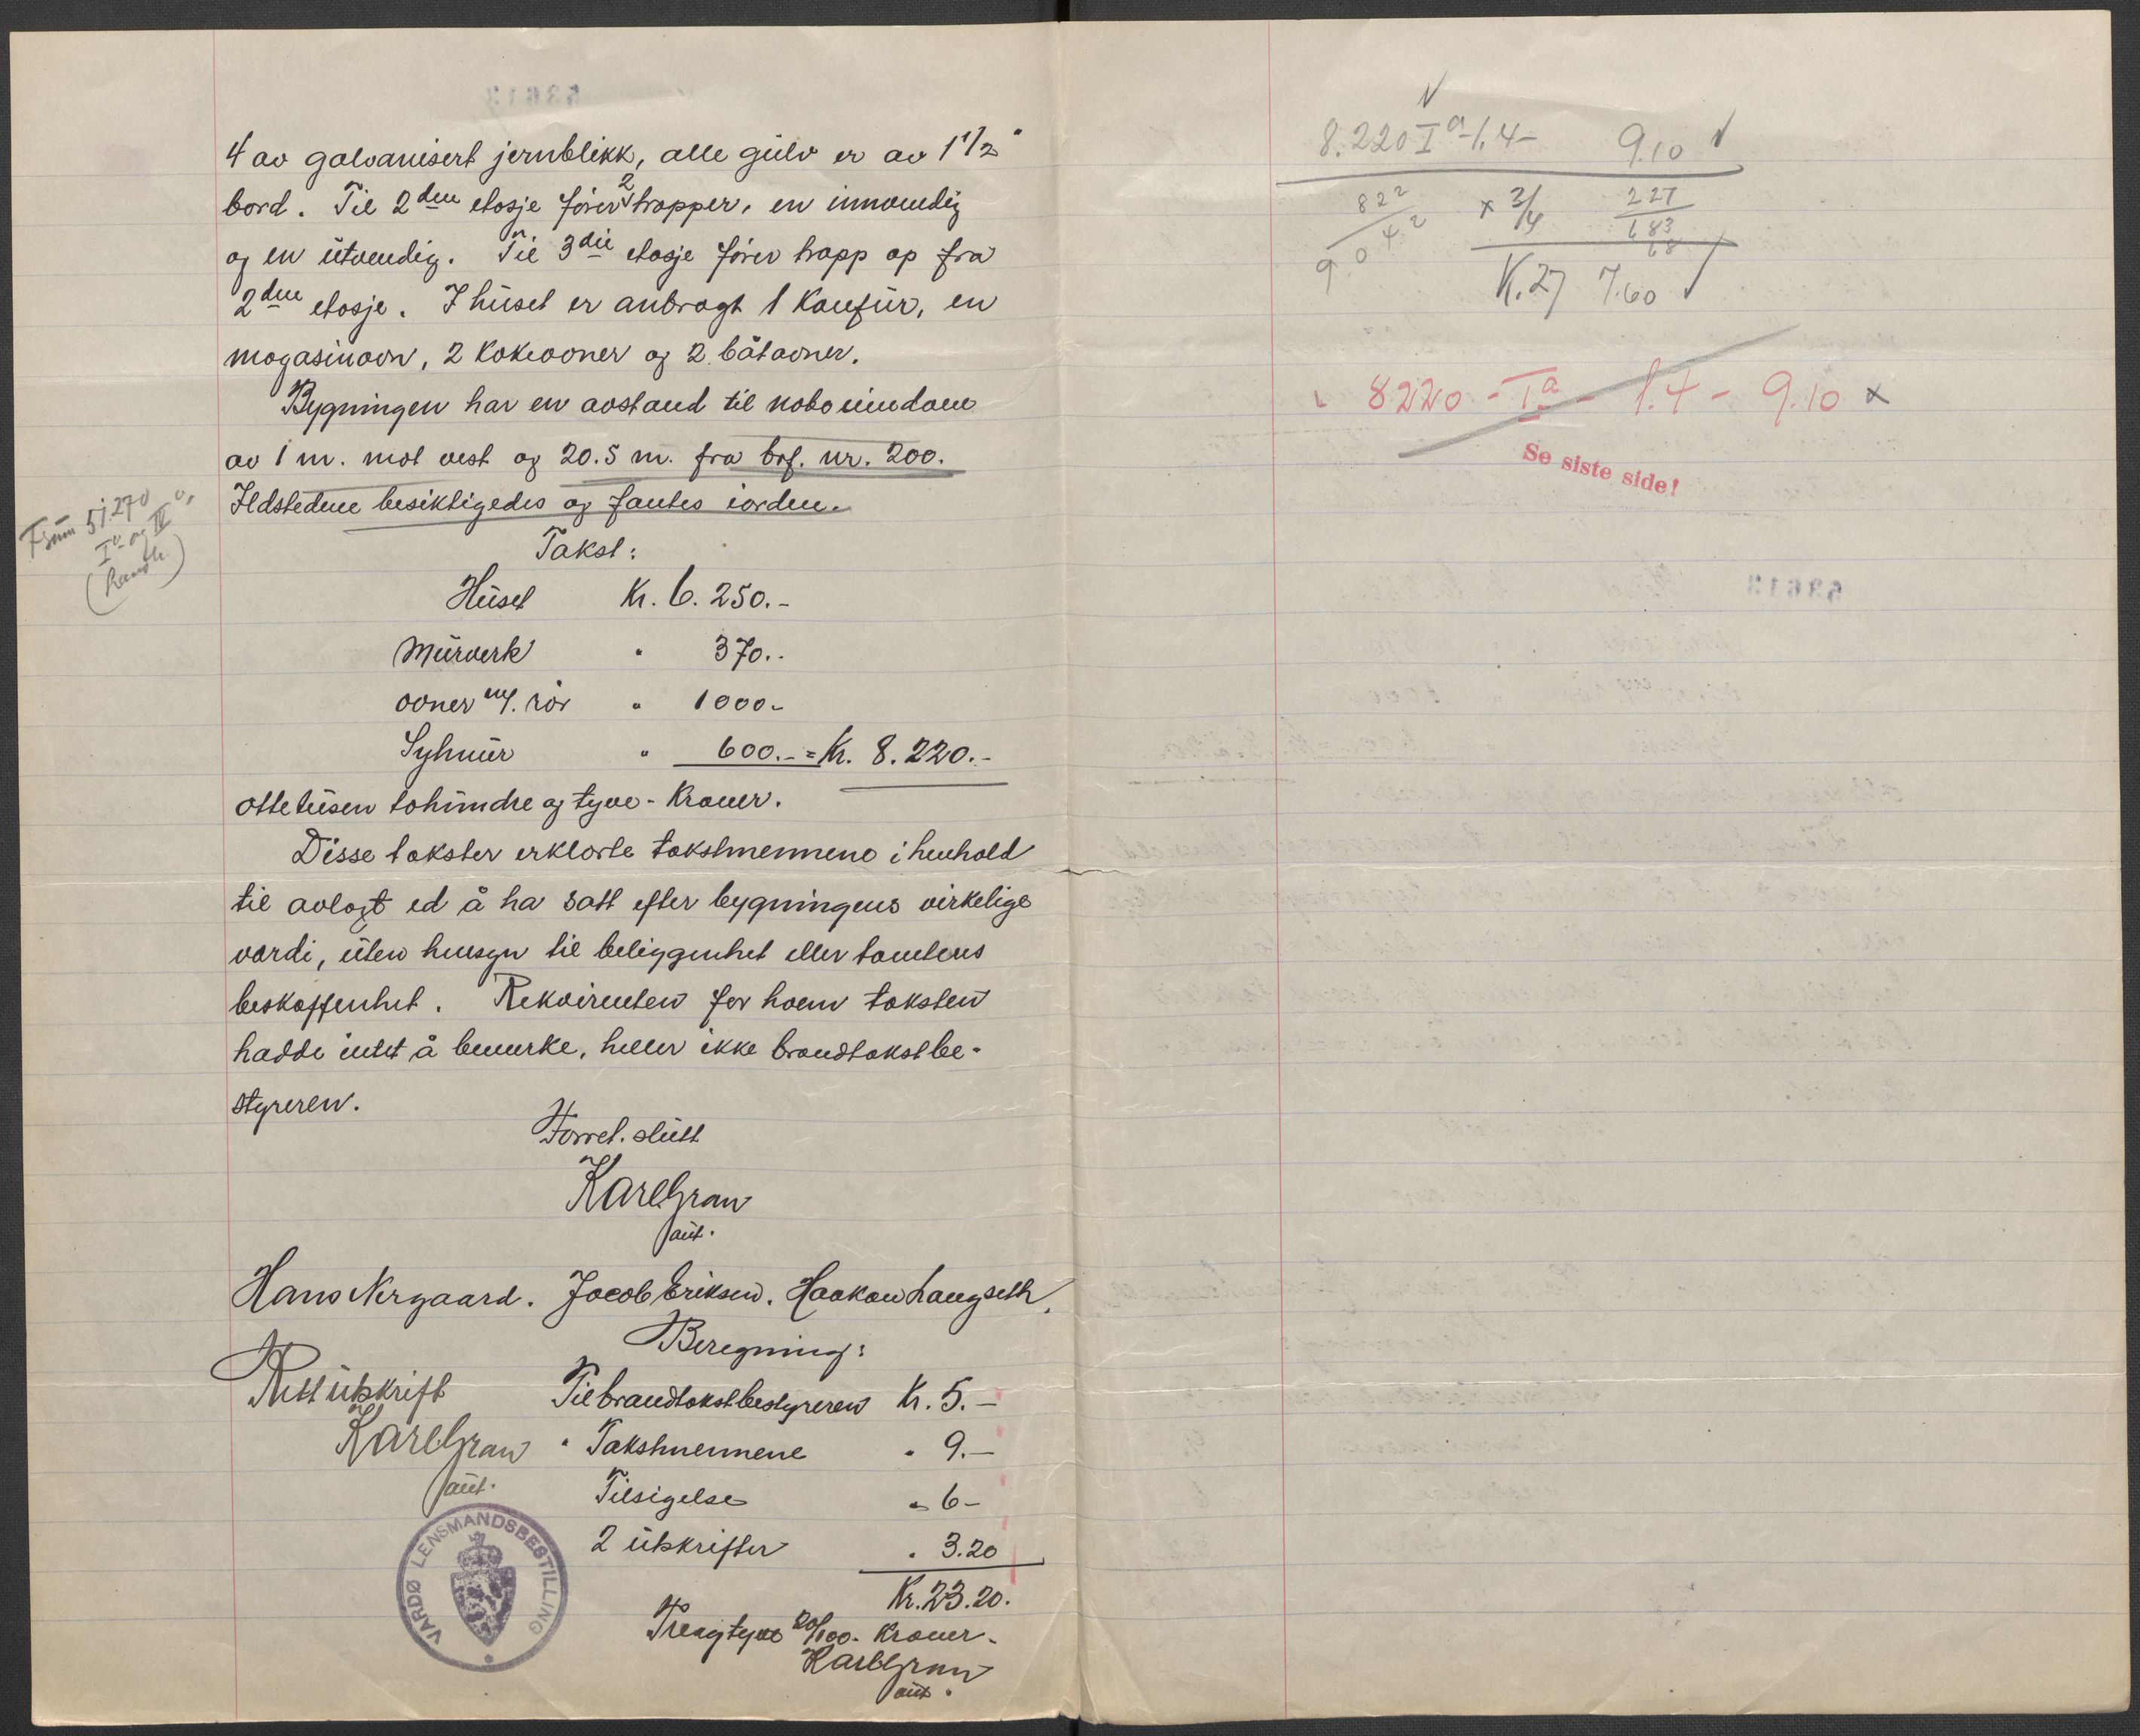 4 av galvanisert jernblikk, alle gulv er av 1 1/2"
bord. Til 2den etasje fører 2 trapper, en innvendig
og en utvendig. Til 3die etasje fører trapp op fra
2den etasje. I huset er anbragt 1 Komfur, en
magasinovn, 2 Kokeovner og 2 båtovner.
Bygningen har en avstand til naboeiendom
av 1 m. mot vest og 20.5 m. fra brf. nr. 200.
Ildstedene besiktigedes og fantes iorden.
Takst:
Huset Kr. 6.250.-
Murverk " 370.-
ovner m/. rör " 1000-
Sylmur " 600.- = Kr. 8.220.-
ottetusen tohundre og tyve - Kroner.
Disse takster erklærte takstmennene i henhold
til avlagt ed å ha satt efter bygningens virkelige
værdi, uten hensyn til beliggenhet eller tomtens
beskaffenhet. Rekvirenten for hvem taksten
hadde intet å bemerke, heller ikke brandtakstbe-
styreren.
Forret. slutt
Karl Gran
aut.
Hans Nergaard. Jacob Eriksen. Haakon Langseth.
Beregning:
Rett utskrift
Til brandtakstbestyreren Kr. 5.-
Karl Gran
aut.
" Takstmennene " 9.-
Tilsigelse " 6-
2 utskrifter " 3.20
Kr. 23.20.
Treogtyve 20/100 - Kroner.
Karl Gran
aut.
VARDØ LENSMANDSBESTILLING
51270
53613
8.220 Ia - 1.4 - 9.10
822
9042
x 3/4
227
683
68
K. 27 7.60
8220 - Ia - 1.4 - 9.10 x
Se siste side!
53613